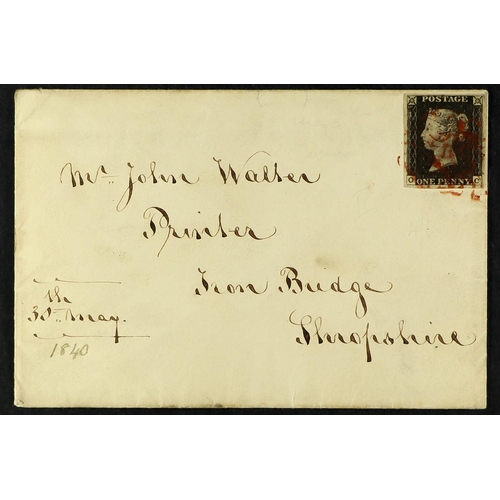 POSTAGE
ONE PENNY
Mr. John Walter
Printer
Iron Bridge
Shropshire
May.
1840